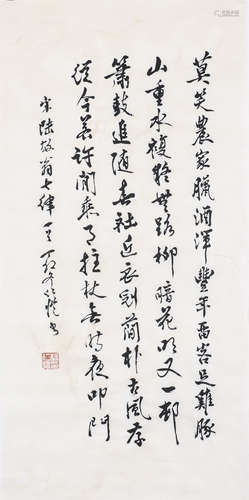 莫笑農家臘酒渾豐年留客足雞豚
山重水複疑無路柳暗花明又一邨
簫鼓追隨春社近衣冠簡朴古風存
從今若許閑乘月拄杖無時夜叩門
宋陸放翁七律一首